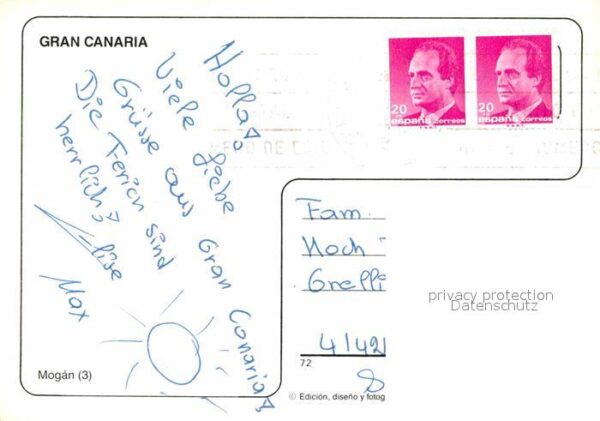 GRAN CANARIA
Holla!
Viele liebe
Grüsse aus Gran Canaria!
Die Ferien sind
herrlich!
Max
Mogán (3)
20
españa correos
20
españa correos
Fam.
Hoch
Grelli
4142
72
© Edición, diseño y fotog
privacy protection
Datenschutz